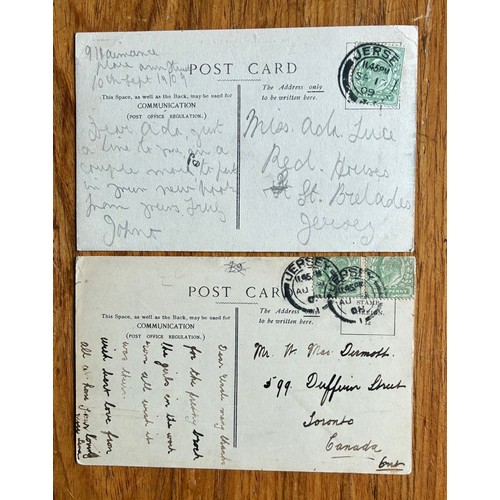 place
10th Sept 1909
POST CARD
JERSEY
11.45PM
09
This Space, as well as the Back, may be used for
COMMUNICATION
(POST OFFICE REGULATION.)
The Address only
to be written here.
Dear Ada, just
a line to you an a
couple more to put
in your new book
from yours Truly
John
Miss. Ada Luce
Red Houses
St. Brelades
Jersey
POST CARD
JERSEY
11.45PM
AU
JERSEY
11.45PM
AU
STAMP
This Space, as well as the Back, may be used for
COMMUNICATION
(POST OFFICE REGULATION.)
The Address only
to be written here.
Dear Uncle many thanks
for the pretty
the girls in the work
room all wish it
was theirs.
with best love from
all
Mr. W. Mac Dermott.
599 Dufferin Street
Toronto
Canada
Ont